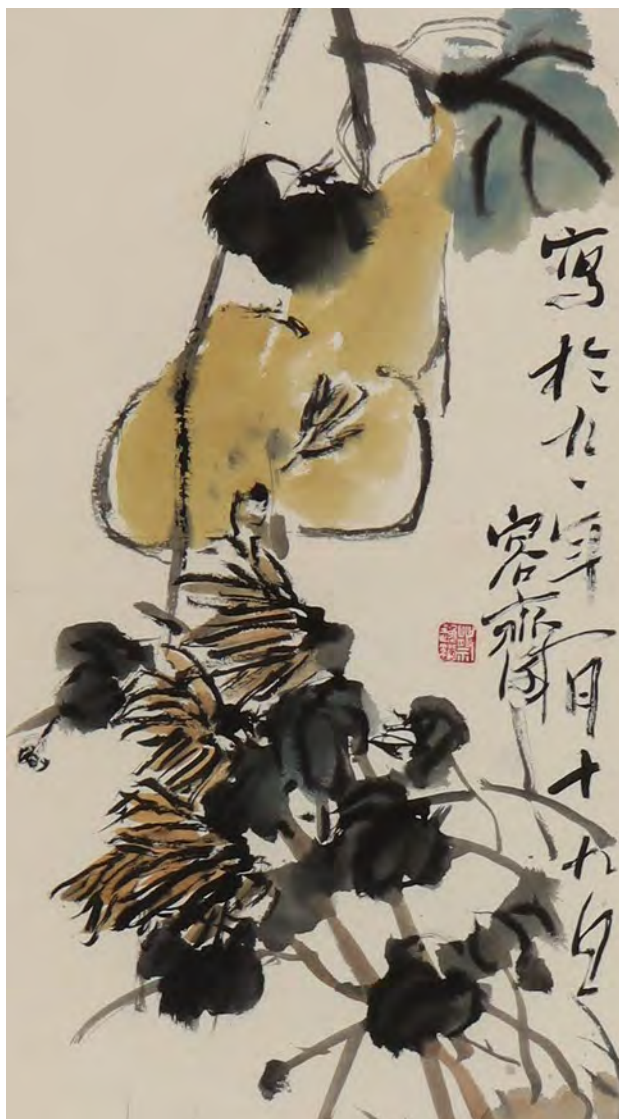 寫於九一年一月十九日
容齋